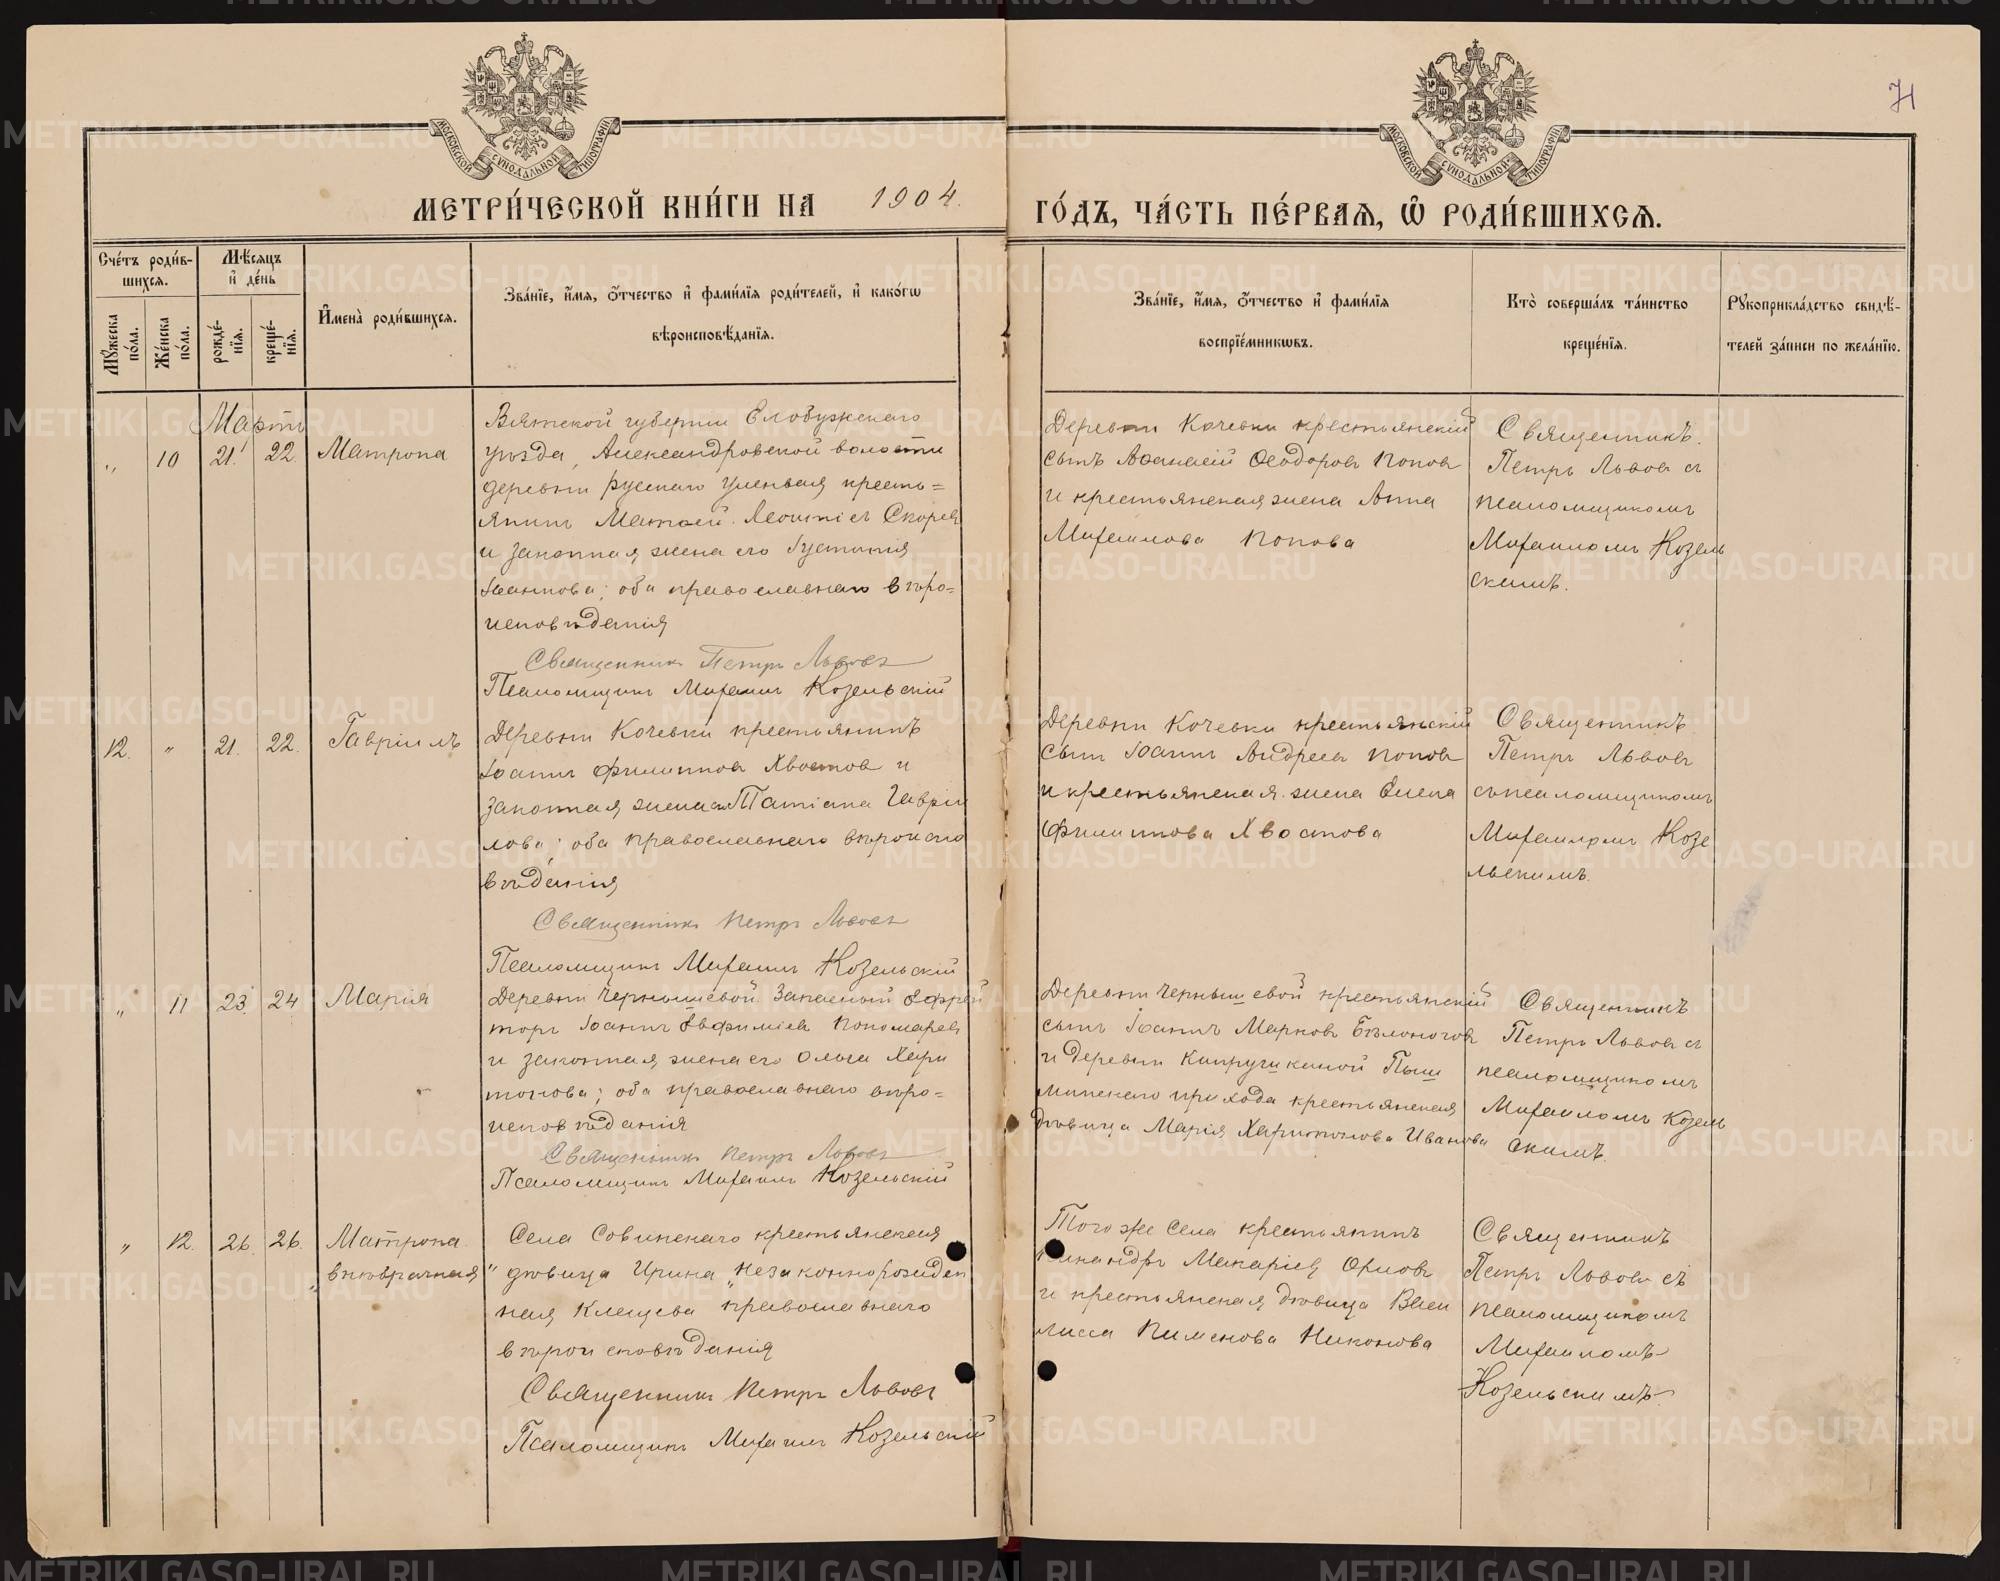 71
МОСКОВСКОЙ СУНОДАЛЬНОЙ ТИПОГРАФІИ
МОСКОВСКОЙ СУНОДАЛЬНОЙ ТИПОГРАФІИ
МЕТРИ́ЧЕСКОЙ КНИ́ГИ НА 1904. ГО́ДЪ, ЧА́СТЬ ПЕ́РВАѦ, Ѽ РОДИ́ВШИХСѦ.
Сче́тъ роди́в-
шихсѧ.
Мꙋ́жеска по́ла.
Же́нска по́ла.
Мѣ́сѧцъ
и҆ де́нь
рожде́-
нїѧ.
креще́-
нїѧ.
И҆мена̀ роди́вшихсѧ.
Зва́нїе, и҆́мѧ, ѻ҆́тчество и҆ фами́лїѧ роди́телей, и҆ како́гѡ
вѣроисповѣ́данїѧ.
Зва́нїе, и҆́мѧ, ѻ҆́тчество и҆ фами́лїѧ
воспрїе́мникѡвъ.
Кто̀ соверша́лъ та́инство
креще́нїѧ.
Рꙋкоприкла́дство свидѣ́-
телей за́писи по жела́нїю.
Мартъ
" 10 21. 22. Матрона
Вятской губерніи Елабужскаго
уѣзда, Александровской волости
деревни Русскаго крестья=
янинъ Матѳей Леонтіевъ Скорев
и законная жена его Іустинія
Іоаннова; оба православнаго вѣро=
исповѣданія
Священникъ Петръ Львовъ
Псаломщикъ Михаилъ Козельскій
Деревни Кочевки крестьянскій
сынъ Аѳанасій Ѳеодоровъ Поповъ
и крестьянская жена Анна
Михаилова Попова
Священникъ
Петръ Львовъ съ
псаломщикомъ
Михаиломъ Козель
скимъ.
12. " 21. 22. Гавріилъ
Деревни Кочевки крестьянинъ
Іоаннъ Филипповъ Хвостовъ и
законная жена Татіана Гаврiи
лова; оба православнаго вѣроиспо
вѣданія
Священникъ Петръ Львовъ
Псаломщикъ Михаилъ Козельскій
Деревни Кочевки крестьянскій
сынъ Іоаннъ Андреевъ Поповъ
и крестьянская жена Елена
Филиппова Хвостова
Священникъ
Петръ Львовъ
съ псаломщикомъ
Михаиломъ Козе
льскимъ.
" 11 23. 24 Марія
Деревни Чернышевой Запасный Ефрей
торъ Іоаннъ Евфиміевъ Пономаревъ
и законная жена его Ольга Хари
тонова; оба православнаго вѣро=
исповѣданія
Священникъ Петръ Львовъ
Псаломщикъ Михаилъ Козельскій
Деревни Чернышевой крестьянскій
сынъ Іоаннъ Марковъ Бѣлоноговъ
и деревни Пыш
минскаго прихода крестьянская
дѣвица Марія Харитонова Иванова
Священникъ
Петръ Львовъ съ
псаломщикомъ
Михаиломъ Козель
скимъ.
" 12. 26. 26. Матрона
"внѣбрачная"
Села Совинскаго крестьянская
дѣвица Ирина "незаконнорожден
ная Клещева православнаго
вѣроисповѣданія
Священникъ Петръ Львовъ
Псаломщикъ Михаилъ Козельскій
Того же села крестьянинъ
Никандръ Макаріевъ Орловъ
и крестьянская дѣвица Васи
лисса Пименова Никонова
Священникъ
Петръ Львовъ съ
псаломщикомъ
Михаиломъ
Козельскимъ.
METRIKI.GASO-URAL.RU